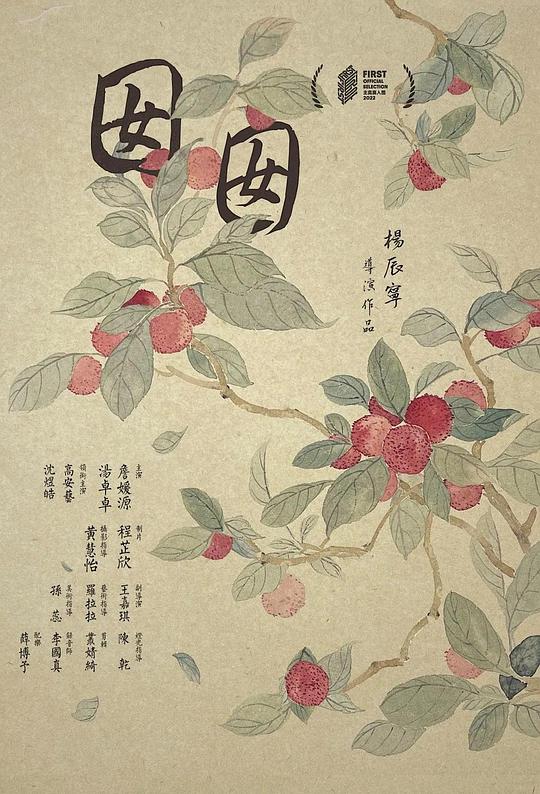 囡
囡
FIRST
OFFICIAL
SELECTION
主竞赛入围
2022
楊辰寧
導演作品
主演
詹媛源
湯卓卓
領銜主演
高安藝
沈煜皓
製片
程芷欣
攝影指導
黃慧怡
副導演
王嘉琪
藝術指導
羅拉拉
美術指導
孫蕊
燈光指導
陳乾
剪輯
叢婧綺
錄音師
李國真
配樂
薛博予